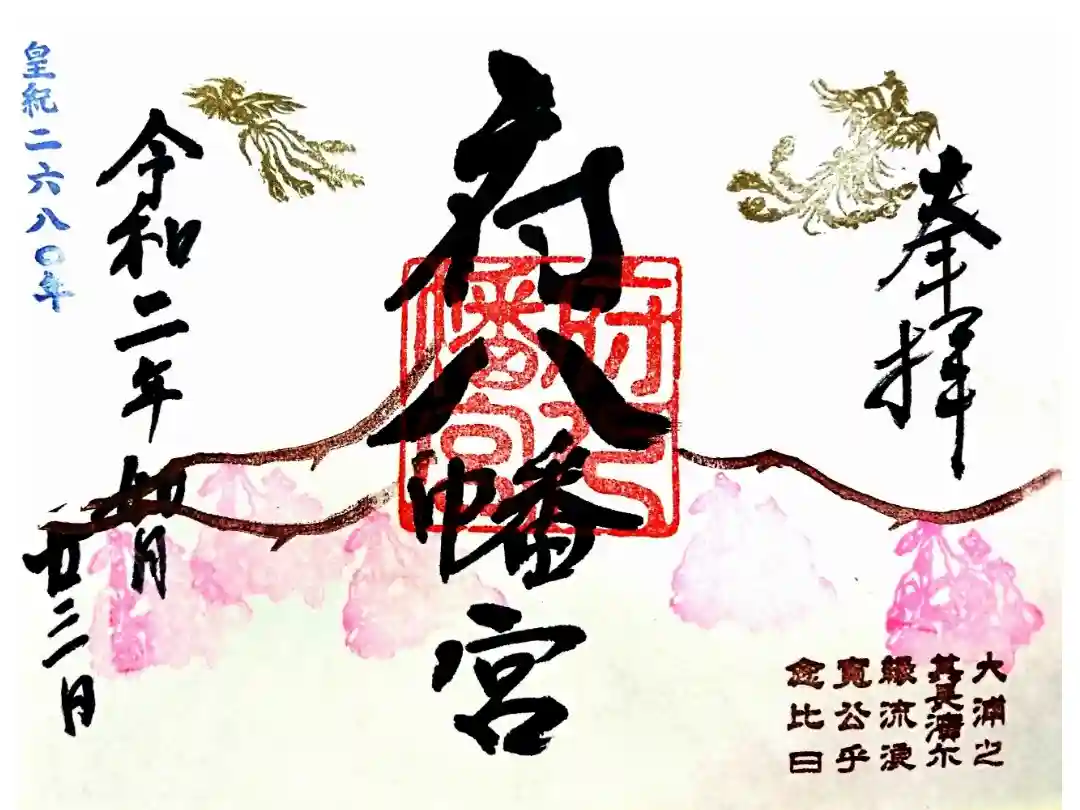 奉拝
府八幡宮
府八幡宮
令和二年
如月
廿三日
皇紀二六八〇年
大浦之
其長濱尓
縁流浪
寛公乎
念比日